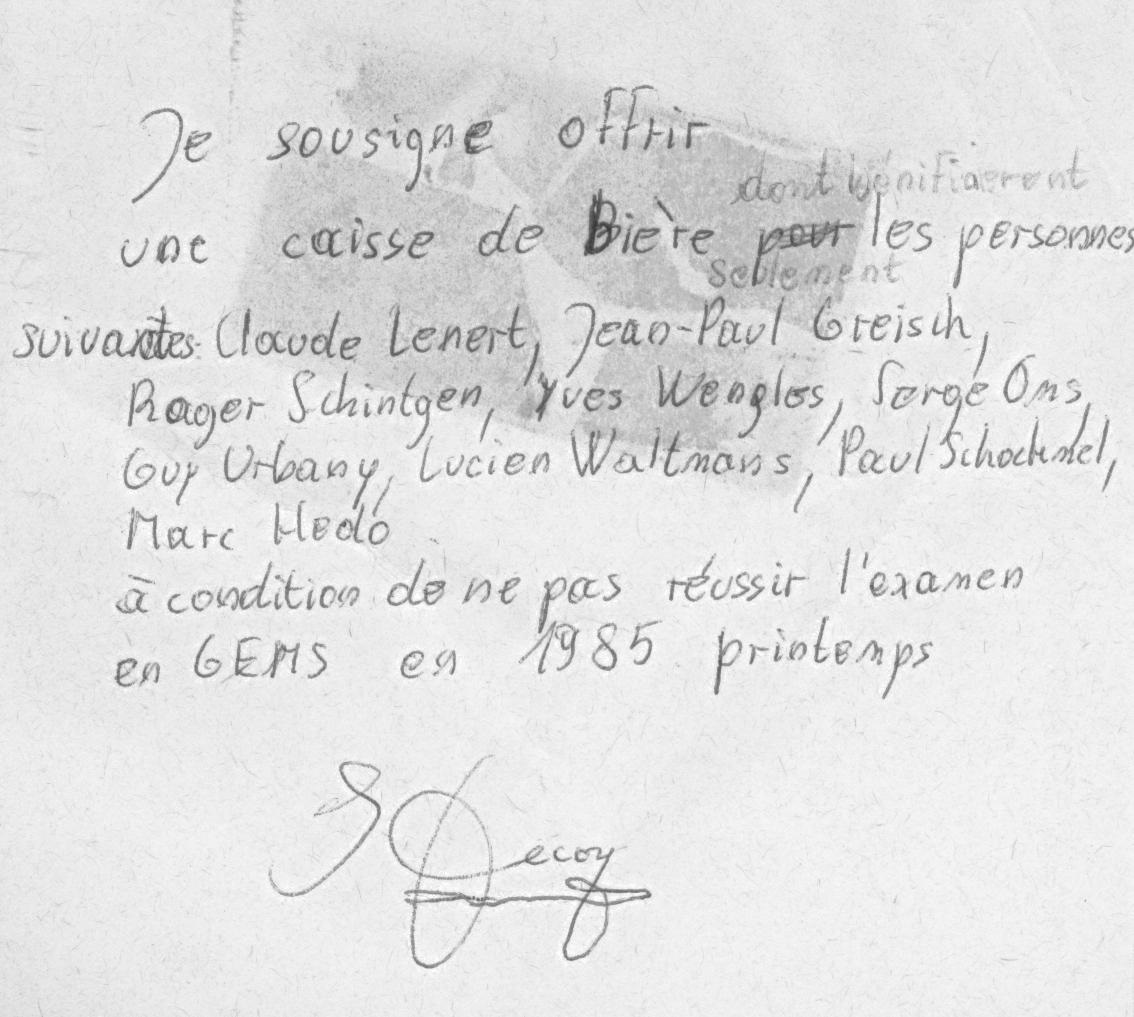 Je sousigne offrir
dont bénifiaeront
une caisse de Bière pour les personnes
seulement
suivantes: Claude Lenert, Jean-Paul Greisch,
Roger Schintgen, Yves Wengles, Serge Oms,
Guy Urbany, Lucien Waltmans, Paul Schockmel,
Marc
à condition de ne pas réussir l'examen
en GEMS en 1985 printemps
Decoy